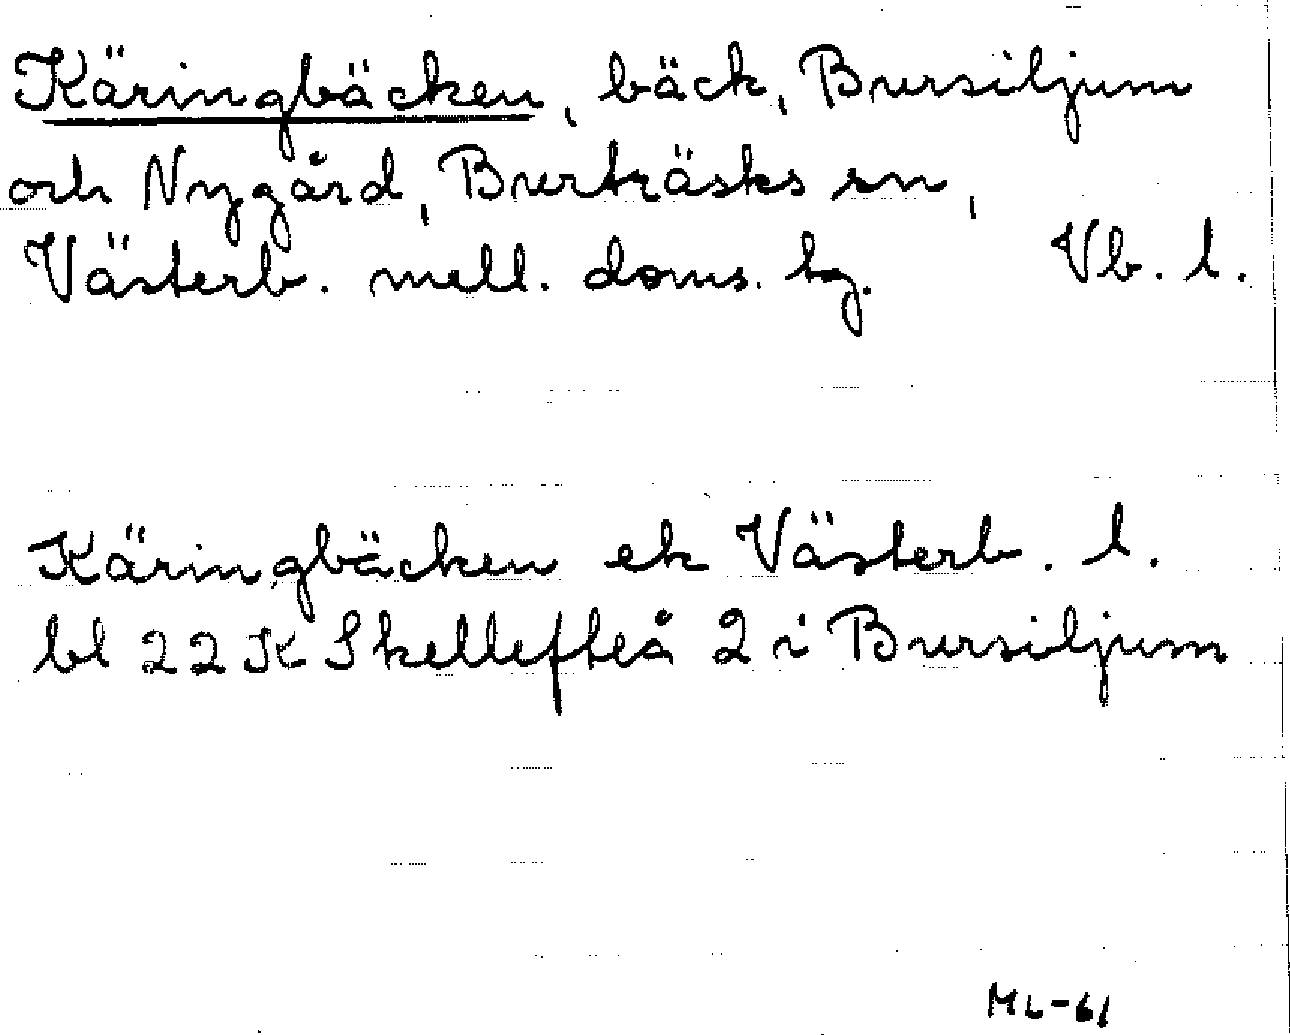 Käringbäcken, bäck, Bursiljum
och Nygård, Burträsks sn,
Västerb. mell. doms. tg. Vb. l.
Käringbäcken ek Västerb. l.
bl 22 K Skellefteå 2 i Bursiljum
ML-61